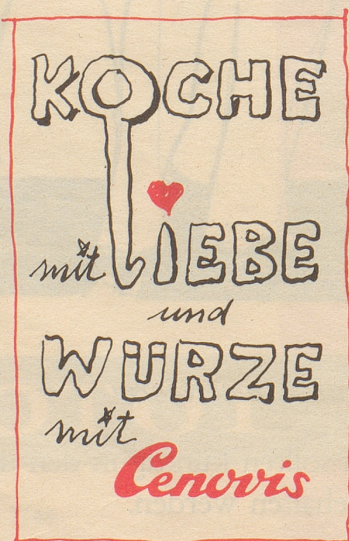 KOCHE
mit LIEBE
und
WÜRZE
mit
Cenovis